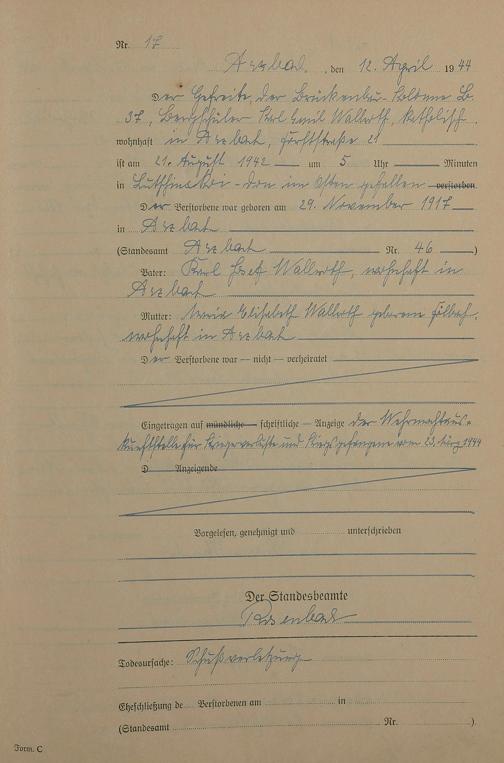 Nr. 17
Arzbach, den 12. April 1944
Der Gefreite, der Brückenbau-Kolonne B.
37, Bergschüler Karl Emil Wallroth, katholisch
wohnhaft in Arzbach, Forststraße 21
ist am 21. August 1942 um 5 Uhr Minuten
in - Don im Osten gefallen verstorben.
Der Verstorbene war geboren am 29. November 1917
in Arzbach
(Standesamt Arzbach Nr. 46)
Vater: Karl Josef Wallroth, wohnhaft in
Arzbach
Mutter: Maria Elisabeth Wallroth geborene
wohnhaft in Arzbach
Der Verstorbene war — nicht — verheiratet
Eingetragen auf mündliche — schriftliche — Anzeige der Wehrmachtaus-
kunftstelle für Kriegerverluste und Kriegsgefangene vom 23. März 1944
D Anzeigende
Vorgelesen, genehmigt und unterschrieben
Der Standesbeamte
Todesursache: Schußverletzung
Eheschließung de Verstorbenen am in
(Standesamt Nr. ).
Form. C